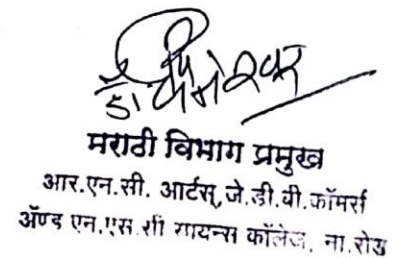 डॉ.
मराठी विभाग प्रमुख
आर.एन.सी. आर्टस्, जे.डी.बी. कॉमर्स
ॲण्ड एन.एस.सी सायन्स कॉलेज, ना.रोड